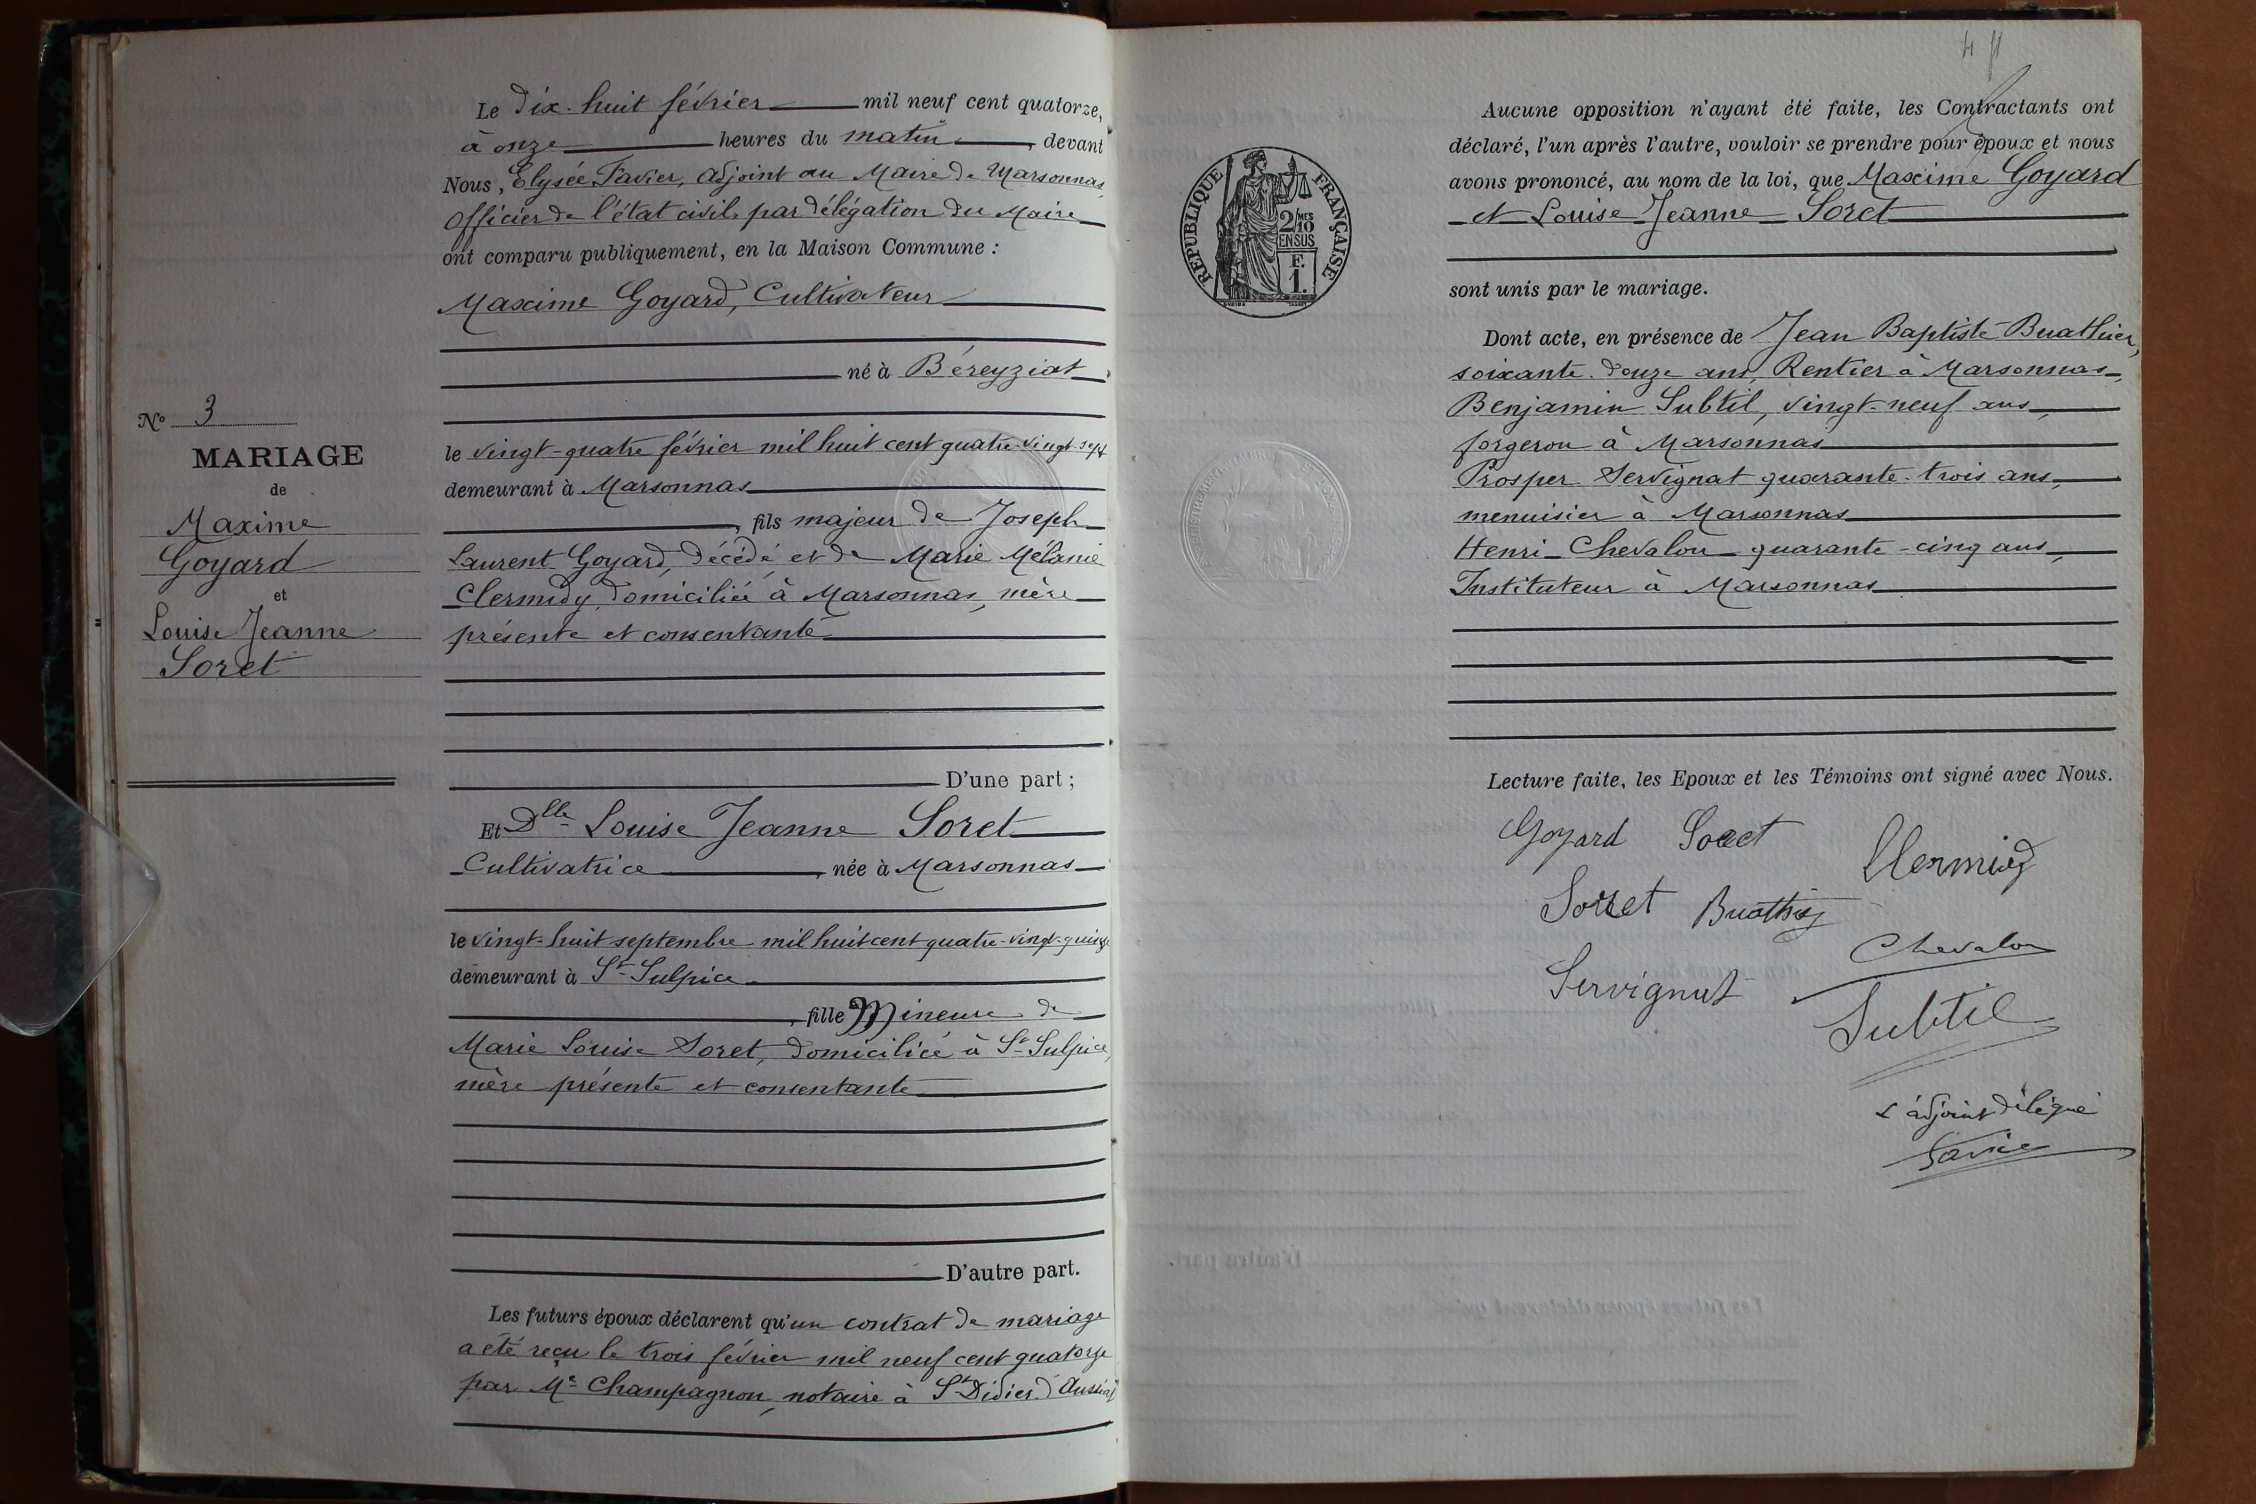 Le dix-huit février mil neuf cent quatorze,
à onze heures du matin, devant
Nous, Elysée Favier, adjoint au Maire de Marsonnas
Officier de l'état civil par délégation du Maire
ont comparu publiquement, en la Maison Commune :
Maxime Goyard, Cultivateur
né à Béreyziat,
le vingt-quatre février mil huit cent quatre-vingt-sept
demeurant à Marsonnas
, fils majeur de Joseph
Laurent Goyard, décédé et de Marie Mélanie
Clermidy, domiciliée à Marsonnas, mère
présente et consentante
D'une part ;
Nº 3
MARIAGE
de
Maxime
Goyard
et
Louise Jeanne
Soret
Et Dlle Louise Jeanne Soret
Cultivatrice, née à Marsonnas
le vingt-huit septembre mil huit cent quatre-vingt-quinze
demeurant à St Sulpice
, fille Mineure de
Marie Louise Soret, domiciliée à St Sulpice,
mère présente et consentante
D'autre part.
Les futurs époux déclarent qu'un contrat de mariage
a été reçu le trois février mil neuf cent quatorze
par Me Champagnon, notaire à St Didier d'Aussiat
RÉPUBLIQUE FRANÇAISE
2/10 MES
EN SUS
F.
1.
Aucune opposition n'ayant été faite, les Contractants ont
déclaré, l'un après l'autre, vouloir se prendre pour époux et nous
avons prononcé, au nom de la loi, que Maxime Goyard
et Louise Jeanne Soret
sont unis par le mariage.
Dont acte, en présence de Jean Baptiste Buathier,
soixante-douze ans, Rentier à Marsonnas,
Benjamin Subtil, vingt-neuf ans,
forgeron à Marsonnas
Prosper Servignat quarante-trois ans,
menuisier à Marsonnas
Henri Chevalon quarante-cinq ans,
Instituteur à Marsonnas
Lecture faite, les Epoux et les Témoins ont signé avec Nous.
Goyard Soret Clermidy
Soret Buathier
Chevalon
Servignat
Subtil
L'adjoint délégué
Favier